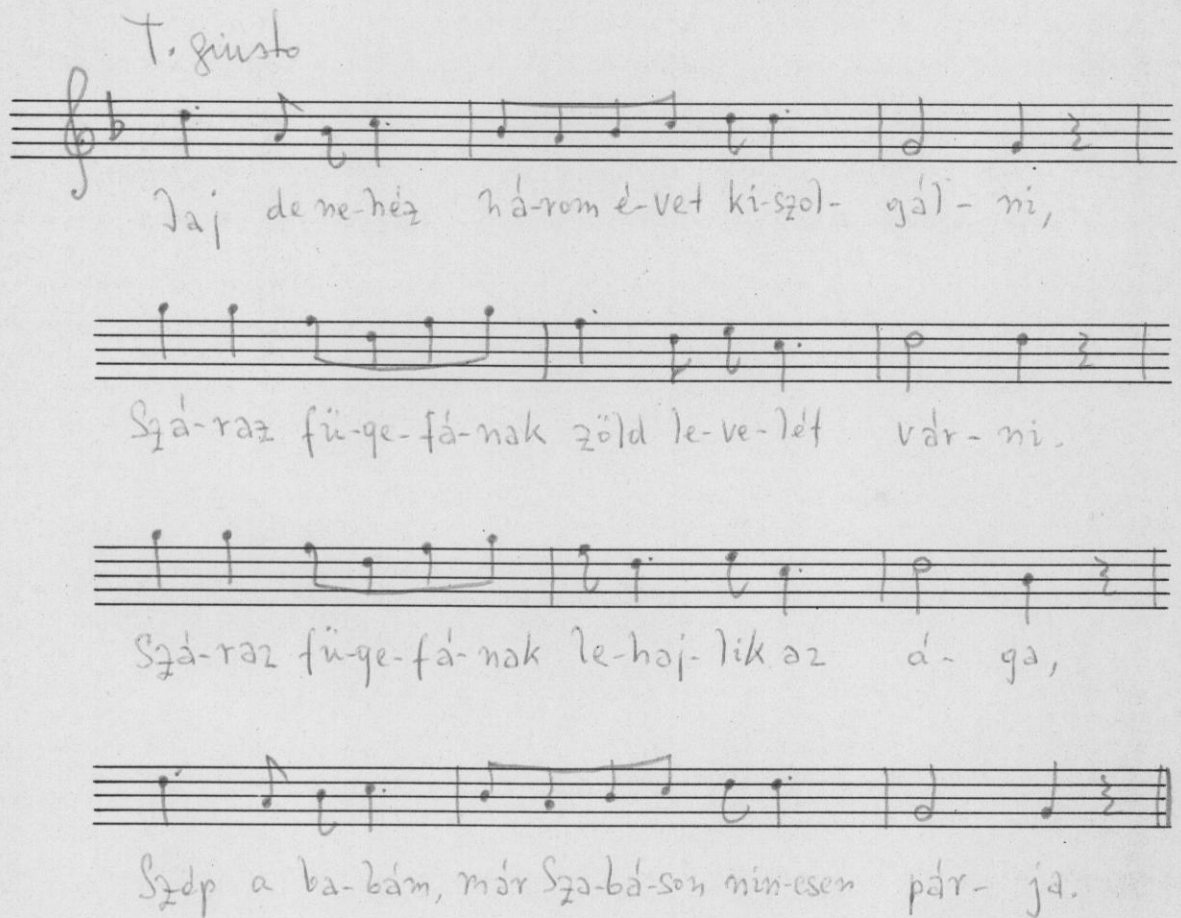 T. giusto
Jaj de ne-héz há-rom é-vet ki-szol- gál- ni,
Szá-raz fü-ge-fá-nak zöld le-ve-lét vár- ni.
Szá-raz fü-ge-fá-nak le-haj-lik az á- ga,
Szép a ba-bám, már Sza-bá-son nin-csen pár- ja.